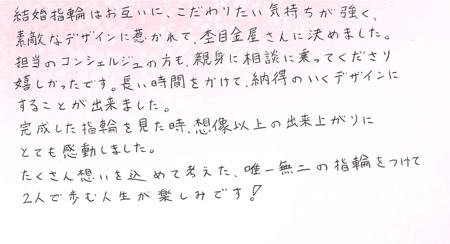 結婚指輪はお互いに、こだわりたい気持ちが強く、
素敵なデザインに惹かれて、杢目金屋さんに決めました。
担当のコンシェルジュの方も、親身に相談に乗ってくださり
嬉しかったです。長い時間をかけて、納得のいくデザインに
することが出来ました。
完成した指輪を見た時、想像以上の出来上がりに
とても感動しました。
たくさん想いを込めて考えた、唯一無二の指輪をつけて
2人で歩む人生が楽しみです!